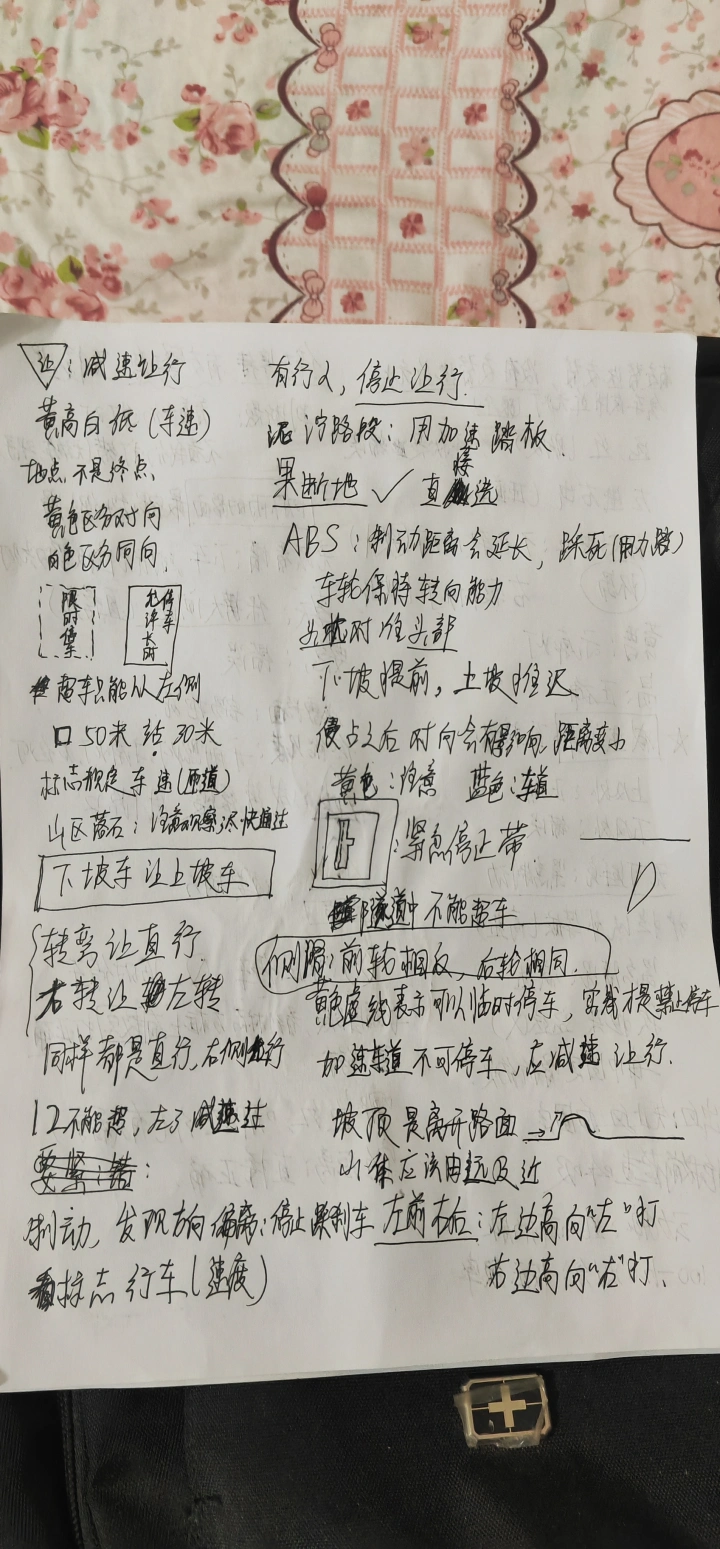 让：减速让行
黄高白低（车速）
地点、不是终点、
黄色区分对向
白色区分同向、
限时停车
允许长时停车
超车只能从左侧
口50米 站30米
标志规定车速（匝道）
山区落石：注意观察 尽快通过
下坡车让上坡车
转弯让直行、
右转让左转
同样都是直行，右侧先行
12不能超，左了减速过
要紧：错：
制动，发现方向偏离：停止踩刹车
看标志行车（速度）
有行人，停止让行.
泥泞路段：用加速踏板、
果断地 ✓ 直接选
ABS：制动距离会延长，踩死（用力踩）
车轮保持转向能力
头枕对准头部
下坡提前，上坡推迟
侵占之后对向会有影响、距离变小
黄色：注意 蓝色：车道
：紧急停止带
隧道中不能超车
侧滑：前轮相反，后轮相同.
黄色虚线表示可以临时停车，实线才是禁止停车
加速车道不可停车，应减速让行.
坡顶是离开路面
山体应该由远及近
左前右后：左边高向“左”打
右边高向“右”打、